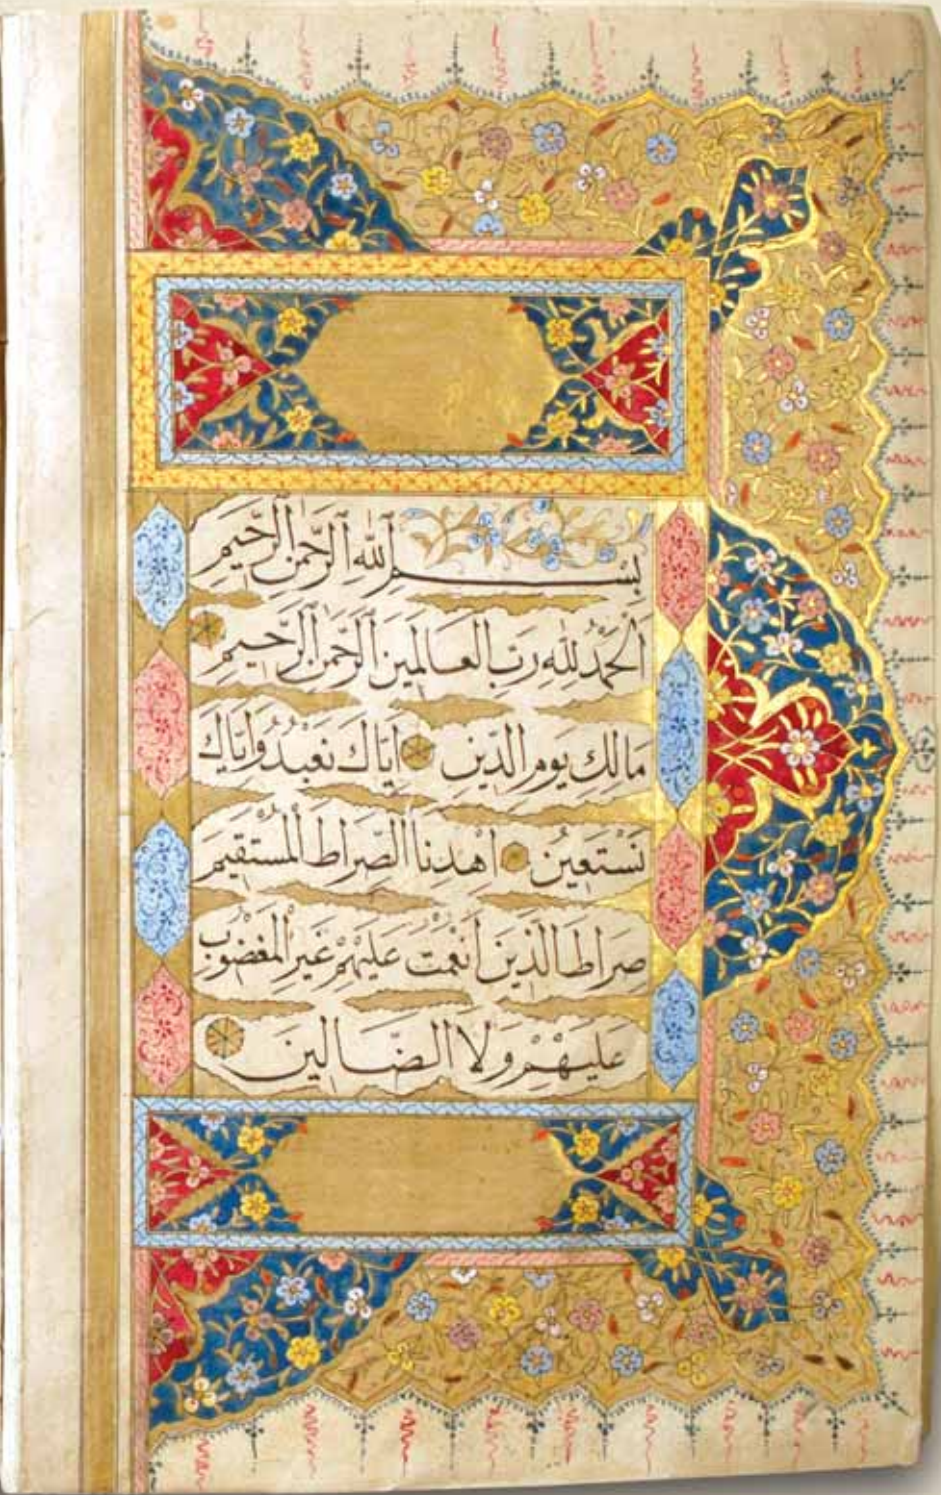 بِسْمِ اللّٰهِ الرَّحْمٰنِ الرَّحِيمِ
اَلْحَمْدُ لِلّٰهِ رَبِّ الْعَالَمِينَ الرَّحْمٰنِ الرَّحِيمِ
مَالِكِ يَوْمِ الدِّينِ اِيَّاكَ نَعْبُدُ وَاِيَّاكَ
نَسْتَعِينُ اِهْدِنَا الصِّرَاطَ الْمُسْتَقِيمَ
صِرَاطَ الَّذِينَ اَنْعَمْتَ عَلَيْهِمْ غَيْرِ الْمَغْضُوبِ
عَلَيْهِمْ وَلَا الضَّالِّينَ